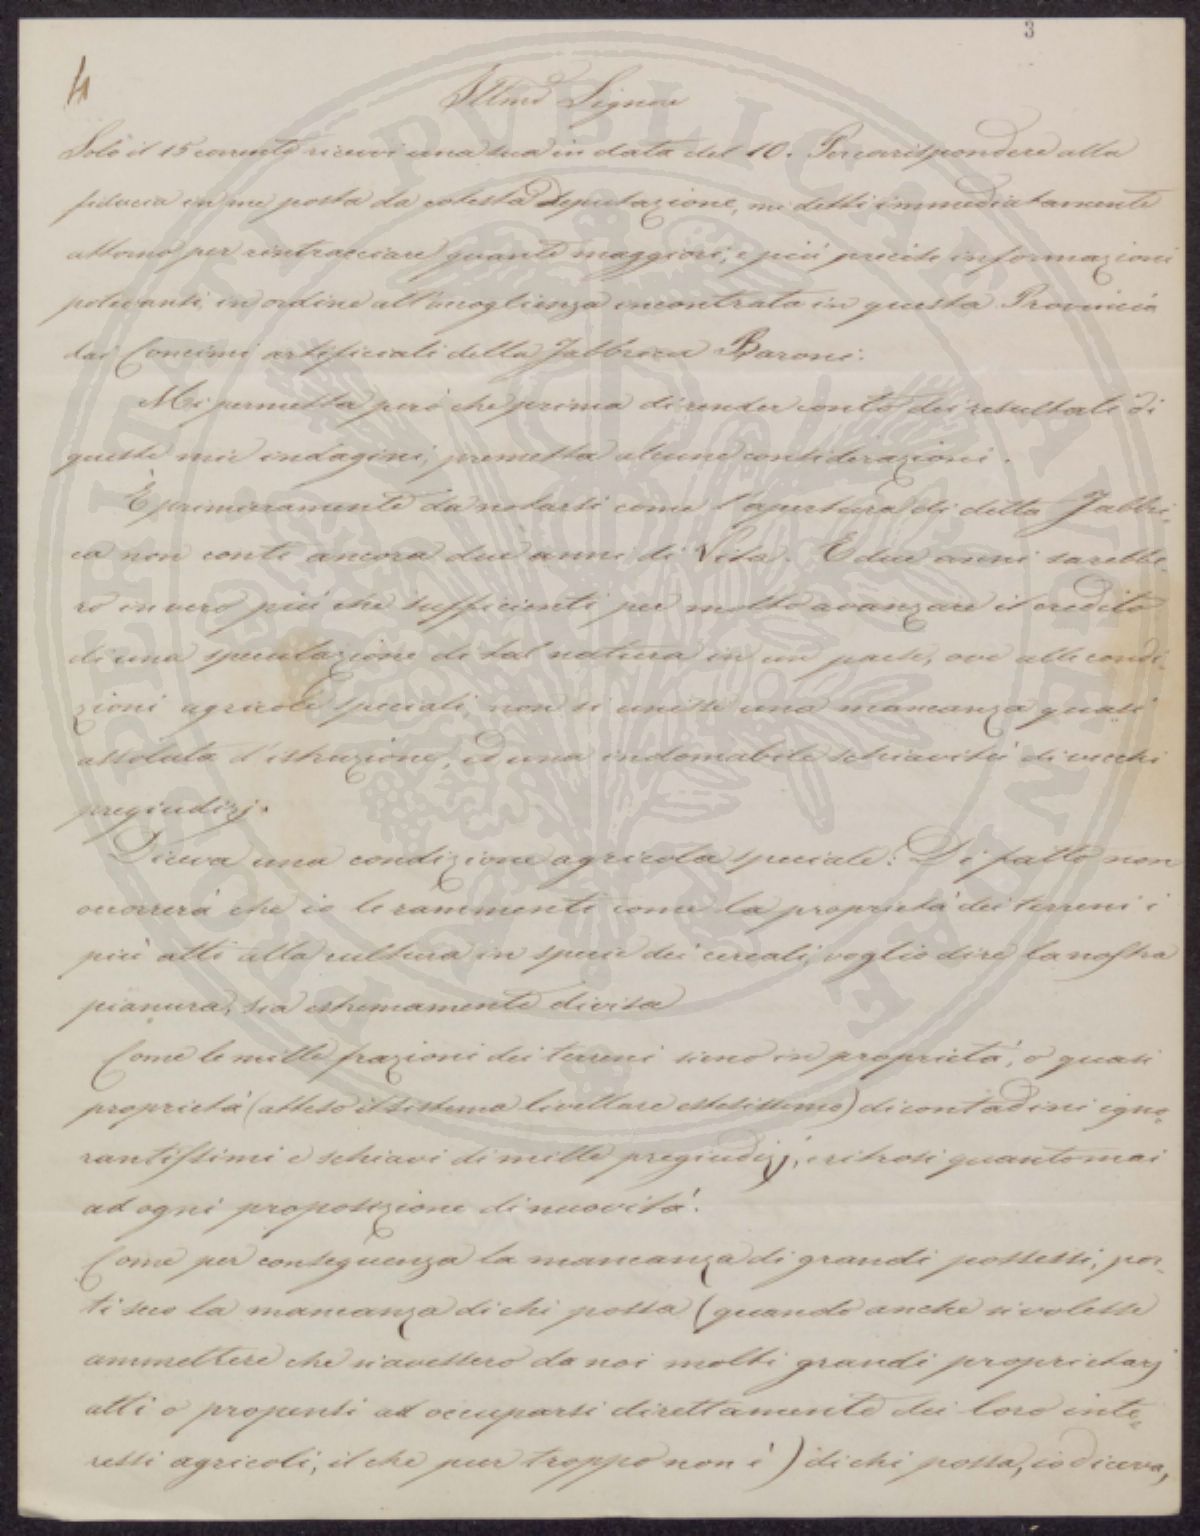 3
4
Illmo Signore
Solo il 15 corrente ricevei una sua in data del 10. Per corrispondere alla
fiducia in me posta da cotesta Deputazione, mi detti immediatamente
attorno per rintracciare quante maggiori, e più precise informazioni
potevansi, in ordine all'accoglienza incontrata in questa Provincia
dai Concimi artificiali della Fabbrica Baroni.
Mi permetta però che prima di render conto dei resultati di
queste mie indagini, premetta alcune considerazioni.
È primieramente da notarsi come l'apertura di detta Fabbri-
ca non conti ancora due anni di Vita. E due anni sarebbe-
ro invero più che sufficienti per molto avanzare il credito
di una speculazione di tal natura in un paese, ove alle condi-
zioni agricole speciali, non si unisse una mancanza quasi
assoluta d'istruzione, ed una indomabile schiavitù di vecchi
pregiudizj.
Diceva una condizione agricola speciale: Di fatto non
occorrerà che io le rammenti come la proprietà dei terreni i
più atti alla cultura in specie dei cereali, voglio dire la nostra
pianura, sia estremamente divisa
Come le mille frazioni dei terreni sieno in proprietà, o quasi
proprietà (atteso il sistema livellare estesissimo) di contadini igno-
rantissimi e schiavi di mille pregiudizj, e ritrosi quanto mai
ad ogni proposizione di nuovità.
Come per conseguenza la mancanza di grandi possessi, por-
ti seco la mancanza di chi possa (quando anche si volesse
ammettere che si avessero da noi molti grandi proprietarj
atti o propensi ad occuparsi direttamente dei loro inte-
ressi agricoli, il che pur troppo non è) di chi possa, io diceva,